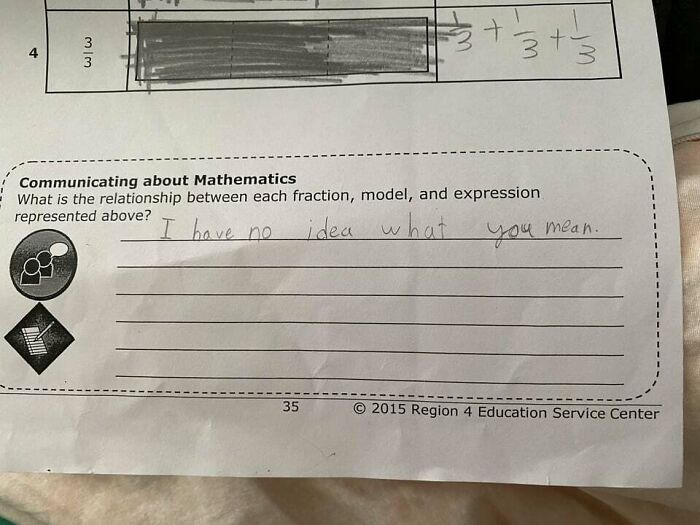 4 3/3 1/3 + 1/3 + 1/3
Communicating about Mathematics
What is the relationship between each fraction, model, and expression
represented above?
I have no idea what you mean.
35 © 2015 Region 4 Education Service Center